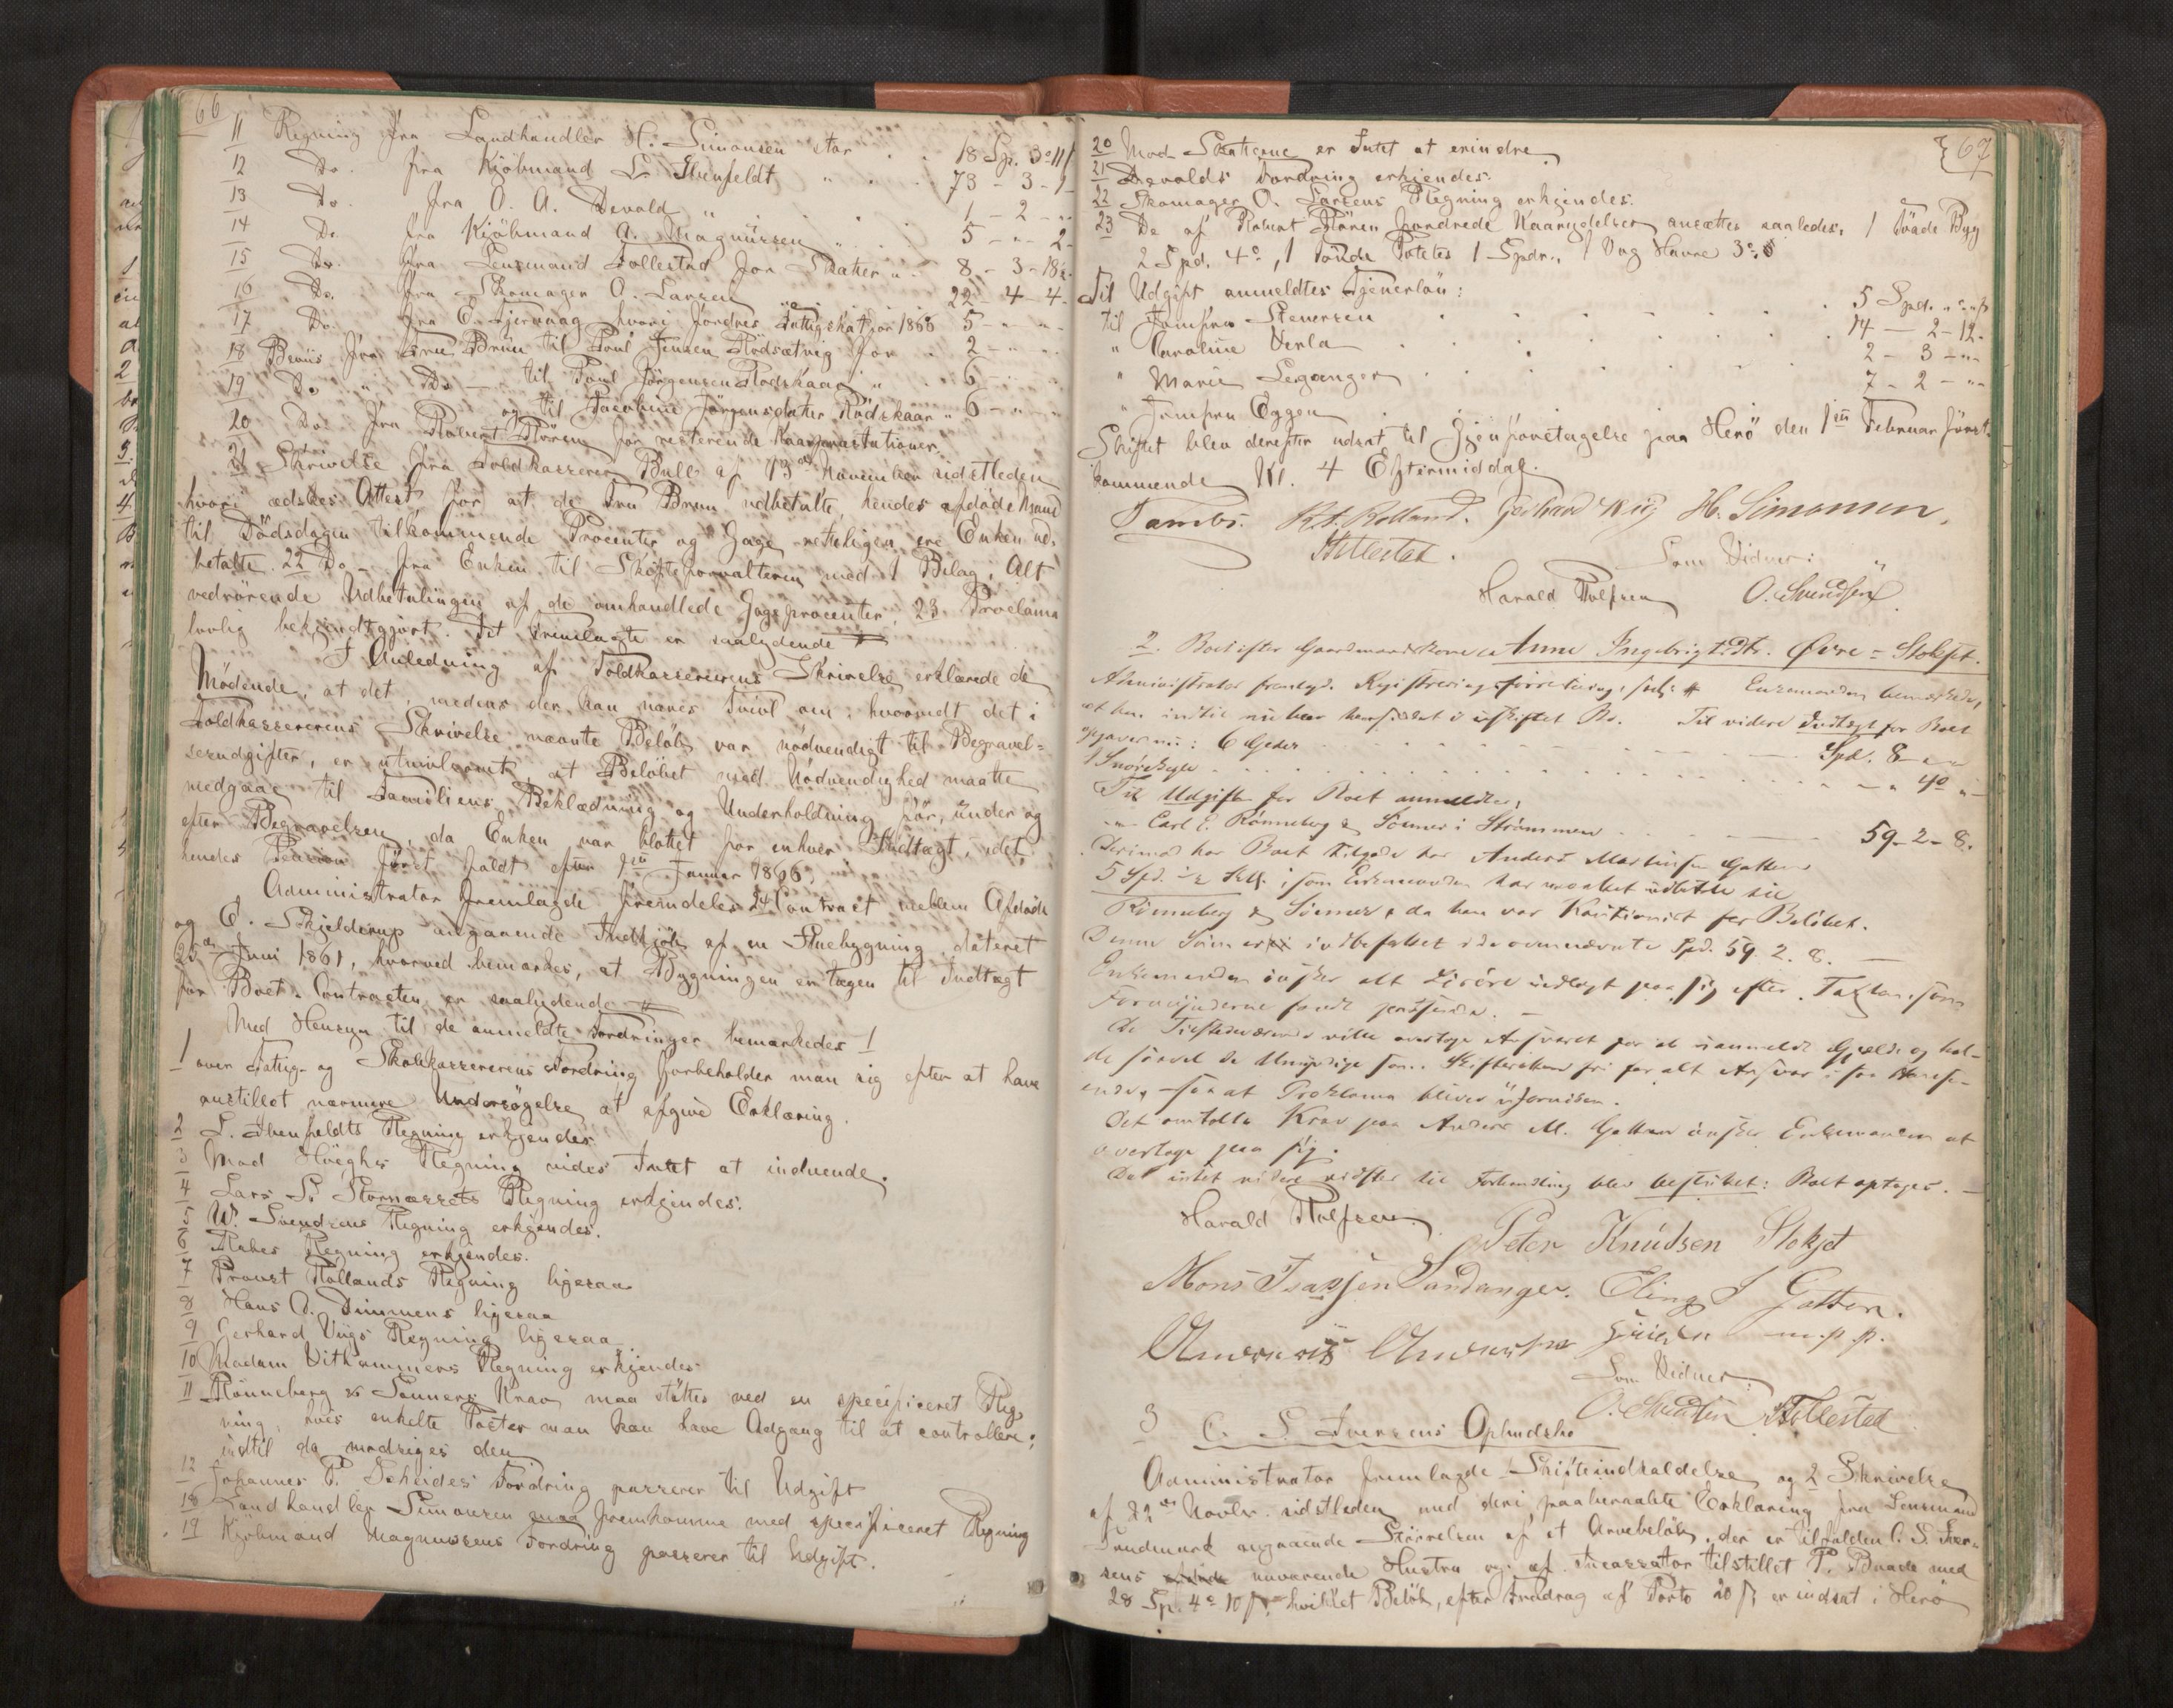 66
11 Regning fra Landhandler H. Simonsen stor . . 18 Sp. 3 11
12 Do. fra Kjöbmand L. Ihenfeldt " . . 73 - 3 - 1 -
13 Do. fra O. A. Devold " . . . 1 - 2 - "
14 Do. fra Kjöbmand A. Magnussen " . . 5 - " 2 -
15 Do. fra Lensmand Follestad for Skatter " . 8 - 3 - 18
16 Do. fra Skomager O. Larsen 22 - 4 - 4 -
17 Do. fra E. hvori fordres Fattigskat for 1865 5 - " "
18 Beviis fra Fru Brün til Poul Jensen for . 2 - " "
19 Do " Do — til Poul Jörgensen Rödskaar " . 6 - " "
og til Jacobine Jörgensdatter Rödskaar " 6 - " "
20 Do fra Robert for resterende
21 Skrivelse fra Toldkasserer Bull af 13de November sidstleden
hvori ædskes Attest for at de Fru Brun udbetalte, hendes afdöde Mand
til Dödsdagen tilkommende Procenter og Gage retteligen ere Enken ud-
betalte. 22 Do - fra Enken til Skifteforvalteren med 1 Bilag, Alt
vedrörende Udbetalingen af de omhandlede Gageprocenter, 23. Proclama
lovlig bekjendtgjort. Det Fremlagte er saalydende
I Anledning af Toldkassererens Skrivelse erklærede de
Mödende, at det, medens der kan være Tvivl om, hvorvidt det i
Toldkassererens Skrivelse nævnte Belöb var nödvendigt til Begravel-
sesudgifter, er utvivlsomt, at Belöbet med Nödvendighed maatte
medgaae til Familiens Beklædning og Underholdning för, under og
efter Begravelsen, da Enken var blottet for enhver Indtægt, idet
hendes Pension först faldt efter 1ste Januar 1866.
Administrator fremlagde fremdeles 24 Contract mellem Afdöde
og E. Schjelderup angaaende Indkjöb af en Stuebygning, dateret
25de Juni 1861, hvorved bemærkes, at Bygningen er tagen til Indtægt
for Boet. Contracten er saalydende
Med Hensyn til de anmeldte Fordringer bemærkedes
1 over Fattig- og Skolekassererens Fordring forbeholder man sig efter at have
anstillet nærmere Undersögelse at afgive Erklæring.
2 L. Ihenfeldts Regning erkjendes
3 Mod Höeghs Regning vides Intet at indvende.
4 Lars P. Stornæssets Regning erkjendes.
5 W. Svendsens Regning erkjendes.
6 Rabes Regning erkjendes.
7 Provst Hollands Regning ligesaa
8 Hans D. Dimmens ligesaa
9 Gerhard Viigs Regning ligesaa
10 Madam Vithammers Regning erkjendes
11 Rönneberg & Sönners Krav maa stöttes ved en specificeret Reg-
ning, hvis enkelte Poster man kan have Adgang til at controllere;
indtil da modsiges den
12 Johannes P. Scheides Fordring passerer til Udgift
18 Landhandler Simonsen maa fremkomme med specificeret Regning
19 Kjöbmand Magnussens Fordring passerer til Udgift.
67
20 Mod Skatterne er Intet at erindre
21 Devolds Fordring erkjendes.
22 Skomager O. Larsens Regning erkjendes.
23 De af Robert fordrede ansættes saaledes, 1 Tönde Byg
2 Spd. 4, 1 Tönde Potetes 1 Spdr., 1 Vog Havre 3
Til Udgift anmeldtes Tjenerlön:
til Jomfru Stenersen . . . . 5 Spd. " "
" Caroline Verla . . . . 14 — 2 - 12 -
" Marie Leganger . . . . 2 - 3 - "
" Jomfru Eggen . . . . 7 - 2 - "
Skiftet blev derefter udsat til Gjenforetagelse paa Herö den 1ste Februar först-
kommende Kl. 4 Eftermiddag.
Tambs. Kt. Rolland. Gerhard Wiig H. Simonsen,
Follestad.
Som Vidner:
Harald Rolfsen O. Svendsen
2. Boet efter Gaardmandskone Anne Ingebrigtsdtr. Övre-Stokset.
Administrator fremlagde Registreringsforretning Enkemanden bemærkede,
at han indtil nu har hensiddet i uskiftet Bo. Til videre Indtægt for Boet
opgaves nu: 6 Geder . . . . Spd. 8 - " "
1 . . . . " 40 "
Til Udgift for Boet anmeldtes,
Carl E. Rönneberg & Sönner i Strömmen . . . 59 - 2 - 8.
Derimod har Boet tilgode hos Anders Martinsen Gotten
5 Spd. som Enkemanden har maattet udbetale til
Rönneberg & Sönner, da han var Kautionist for Belöbet.
Denne Sum er indbefattet i de ovennævnte Spd. 59. 2. 8. —
Enkemanden önsker alt Lösöre udlagt paa sig efter Taxten, som
Formynderne fandt passende. —
De Tilstedeværende ville overtage Ansvaret for al uanmeldt Gjæld og hol-
de saavel de Umyndige som Skifteretten fri for alt Ansvar i saa Hense-
ende, - saa at Proklama bliver uforneden.
Det omtalte Krav paa Anders M. Gotten önsker Enkemanden at
overtage paa sig.
Da intet videre vidstes til Forhandling blev besluttet: Boet optages. —
Harald Rolfsen Peter Knudsen Stokset
Mons Isaksen Sandanger. Eling S Gotten.
m. p. p.
Som Vidner:
O. Svendsen Follestad
3 C. S. Iversens Opbudsbo
Administrator fremlagde 1 Skifteindkaldelse og 2 Skrivelse
af 22de Novbr. sidstleden med deri paaberaabte Erklæring fra Lensmand
Landmark angaaende Störrelsen af et Arvebelöb, der er tilfalden C. S. Iver-
sens nuværende Hustru og af Incassator tilstillet P. Buade med
28 Sp. 4 10 hvilket Belöb, efter Fradrag af Porto 10 er indsat i Herö